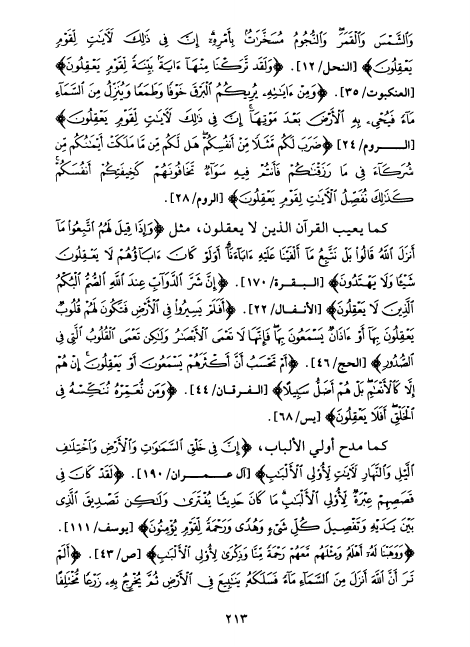 وَالشَّمْسَ وَالْقَمَرَ وَالنُّجُومُ مُسَخَّرَاتٌ بِأَمْرِهِ إِنَّ فِي ذَٰلِكَ لَآيَاتٍ لِّقَوْمٍ
يَعْقِلُونَ﴾ [النحل/١٢]. ﴿وَلَقَد تَّرَكْنَا مِنْهَا ءَايَةً بَيِّنَةً لِّقَوْمٍ يَعْقِلُونَ﴾
[العنكبوت/٣٥]. ﴿وَمِنْ ءَايَاتِهِ يُرِيكُمُ الْبَرْقَ خَوْفًا وَطَمَعًا وَيُنَزِّلُ مِنَ السَّمَاءِ
مَاءً فَيُحْيِي بِهِ الْأَرْضَ بَعْدَ مَوْتِهَا إِنَّ فِي ذَٰلِكَ لَآيَاتٍ لِّقَوْمٍ يَعْقِلُونَ﴾
[الـــروم/٢٤] ﴿ضَرَبَ لَكُم مَّثَلًا مِّنْ أَنفُسِكُمْ هَل لَّكُم مِّن مَّا مَلَكَتْ أَيْمَانُكُم مِّن
شُرَكَاءَ فِي مَا رَزَقْنَاكُمْ فَأَنتُمْ فِيهِ سَوَاءٌ تَخَافُونَهُمْ كَخِيفَتِكُمْ أَنفُسَكُمْ
كَذَٰلِكَ نُفَصِّلُ الْآيَاتِ لِقَوْمٍ يَعْقِلُونَ﴾ [الروم/٢٨].
كما يعيب القرآن الذين لا يعقلون، مثل ﴿وَإِذَا قِيلَ لَهُمُ اتَّبِعُوا مَا
أَنزَلَ اللَّهُ قَالُوا بَلْ نَتَّبِعُ مَا أَلْفَيْنَا عَلَيْهِ ءَابَاءَنَا أَوَلَوْ كَانَ ءَابَاؤُهُمْ لَا يَعْقِلُونَ
شَيْئًا وَلَا يَهْتَدُونَ﴾ [البـقـرة/١٧٠]. ﴿إِنَّ شَرَّ الدَّوَابِّ عِندَ اللَّهِ الصُّمُّ الْبُكْمُ
الَّذِينَ لَا يَعْقِلُونَ﴾ [الأنـفـال/٢٢]. ﴿أَفَلَمْ يَسِيرُوا فِي الْأَرْضِ فَتَكُونَ لَهُمْ قُلُوبٌ
يَعْقِلُونَ بِهَا أَوْ ءَاذَانٌ يَسْمَعُونَ بِهَا فَإِنَّهَا لَا تَعْمَى الْأَبْصَارُ وَلَٰكِن تَعْمَى الْقُلُوبُ الَّتِي فِي
الصُّدُورِ﴾ [الحج/٤٦]. ﴿أَمْ تَحْسَبُ أَنَّ أَكْثَرَهُمْ يَسْمَعُونَ أَوْ يَعْقِلُونَ إِنْ هُمْ
إِلَّا كَالْأَنْعَامِ بَلْ هُمْ أَضَلُّ سَبِيلًا﴾ [الـفـرقـان/٤٤]. ﴿وَمَن نُّعَمِّرْهُ نُنَكِّسْهُ فِي
الْخَلْقِ أَفَلَا يَعْقِلُونَ﴾ [يس/٦٨].
كما مدح أولي الألباب، ﴿إِنَّ فِي خَلْقِ السَّمَاوَاتِ وَالْأَرْضِ وَاخْتِلَافِ
الَّيْلِ وَالنَّهَارِ لَآيَاتٍ لِّأُولِي الْأَلْبَابِ﴾ [آل عـمـــران/١٩٠]. ﴿لَقَدْ كَانَ فِي
قَصَصِهِمْ عِبْرَةٌ لِّأُولِي الْأَلْبَابِ مَا كَانَ حَدِيثًا يُفْتَرَىٰ وَلَٰكِن تَصْدِيقَ الَّذِي
بَيْنَ يَدَيْهِ وَتَفْصِيلَ كُلِّ شَيْءٍ وَهُدًى وَرَحْمَةً لِّقَوْمٍ يُؤْمِنُونَ﴾ [يوسف/١١١].
﴿وَوَهَبْنَا لَهُ أَهْلَهُ وَمِثْلَهُم مَّعَهُمْ رَحْمَةً مِّنَّا وَذِكْرَىٰ لِأُولِي الْأَلْبَابِ﴾ [ص/٤٣]. ﴿أَلَمْ
تَرَ أَنَّ اللَّهَ أَنزَلَ مِنَ السَّمَاءِ مَاءً فَسَلَكَهُ يَنَابِيعَ فِي الْأَرْضِ ثُمَّ يُخْرِجُ بِهِ زَرْعًا مُّخْتَلِفًا
٢١٣